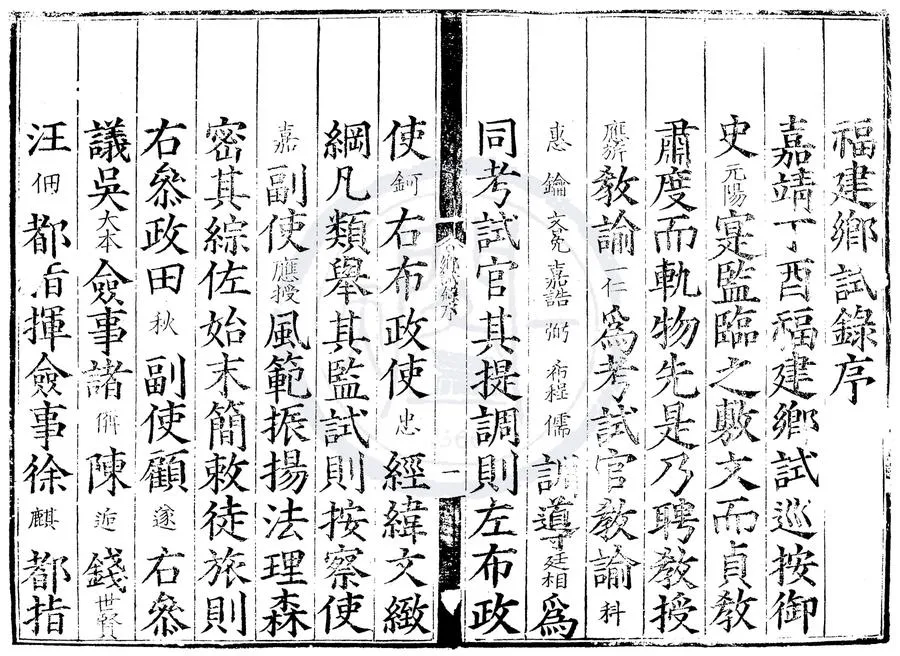 福建鄉試錄序
嘉靖丁酉福建鄉試巡按御
史元陽寔監臨之敷文而貞敎
肅度而軌物先是乃聘敎授
應斿敎諭一仁爲考試官敎諭科
惠鑰文免嘉誥弼布程儒訓導廷相爲
同考試官其提調則左布政
使鈳右布政使忠經緯文緻
綱凡類舉其監試則按察使
嘉副使應授風範振揚法理森
密其綜佐始末簡敕徒旅則
右叅政田秋副使顧遂右叅
議吳大本僉事諸偁陳逅錢世賢
汪佃都指揮僉事徐麒都指